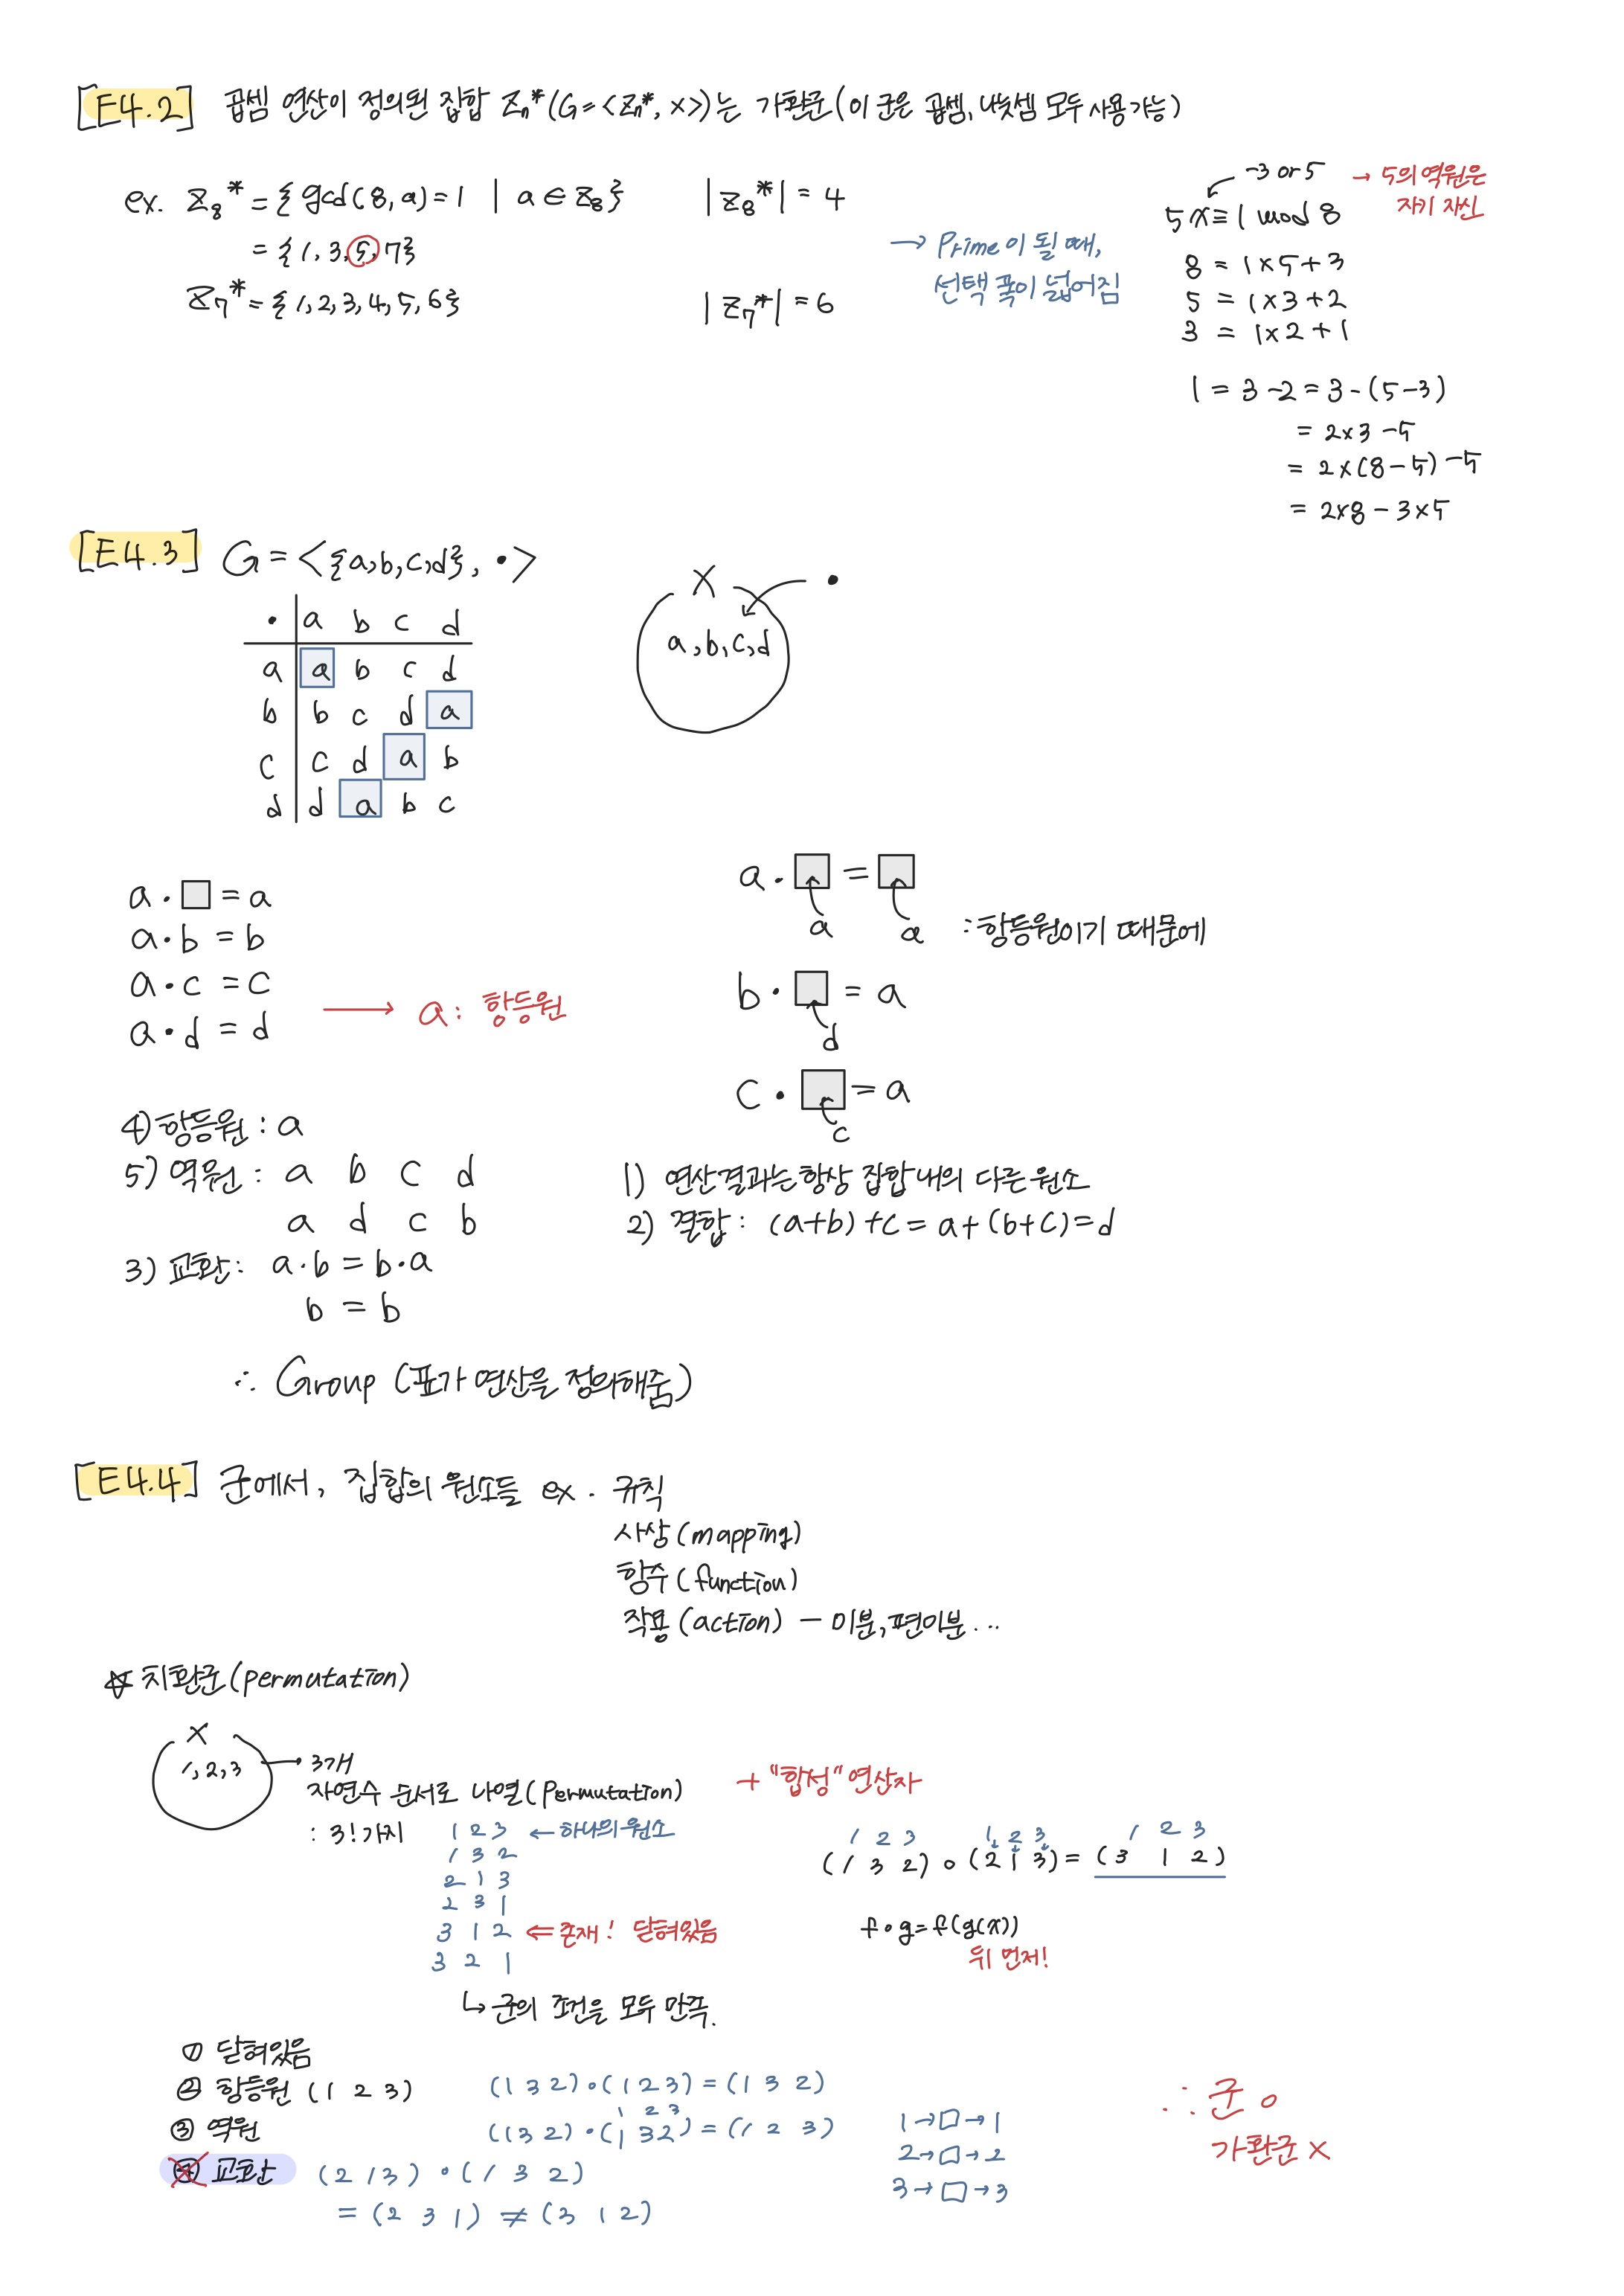 [E4.2] 곱셈 연산이 정의된 집합 Zn*(G=<Zn*, x>)는 가환군(이 군은 곱셈, 나눗셈 모두 사용 가능)
ex. Z8* = {gcd(8, a)=1 | a ∈ Z8}
= {1, 3, 5, 7}
Z7* = {1, 2, 3, 4, 5, 6}
|Z8*| = 4
|Z7*| = 6
→ Prime이 될 때,
선택 폭이 넓어짐
-3 or 5 → 5의 역원은
자기 자신
5x ≡ 1 mod 8
8 = 1x5+3
5 = 1x3+2
3 = 1x2+1
1 = 3-2 = 3-(5-3)
= 2x3-5
= 2x(8-5)-5
= 2x8-3x5
[E4.3] G = <{a,b,c,d}, •>
• a b c d
a a b c d
b b c d a
c c d a b
d d a b c
X •
a, b, c, d
a • □ = a
a • b = b
a • c = c
a • d = d
→ a: 항등원
a • □ = □
a a :항등원이기 때문에
b • □ = a
d
c • □ = a
c
4) 항등원 : a
5) 역원 : a b c d
a d c b
3) 교환 : a•b = b•a
b = b
1) 연산결과는 항상 집합 내의 다른 원소
2) 결합 : (a+b)+c = a+(b+c) = d
∴ Group (표가 연산을 정의해줌)
[E4.4] 군에서, 집합의 원소들 ex. 규칙
사상(mapping)
함수(function)
작용(action) - 미분, 편미분...
☆ 치환군(permutation)
X
1, 2, 3
3개
자연수 순서로 나열(permutation) + "합성" 연산자
: 3!가지
1 2 3 ← 하나의 원소
1 3 2
2 1 3
2 3 1
3 1 2 ⇐ 존재! 닫혀있음
3 2 1
↳ 군의 조건을 모두 만족.
1 2 3 1 2 3 1 2 3
(1 3 2) ∘ (2 1 3) = (3 1 2)
f∘g = f(g(x))
뒤 먼저!
① 닫혀있음
② 항등원 (1 2 3) (1 3 2)∘(1 2 3) = (1 3 2)
1 2 3
③ 역원 (1 3 2)∘(1 3 2) = (1 2 3)
④ 교환 (2 1 3)∘(1 3 2)
= (2 3 1) ≠ (3 1 2)
1→□→1
2→□→2
3→□→3
∴ 군 o
가환군 x